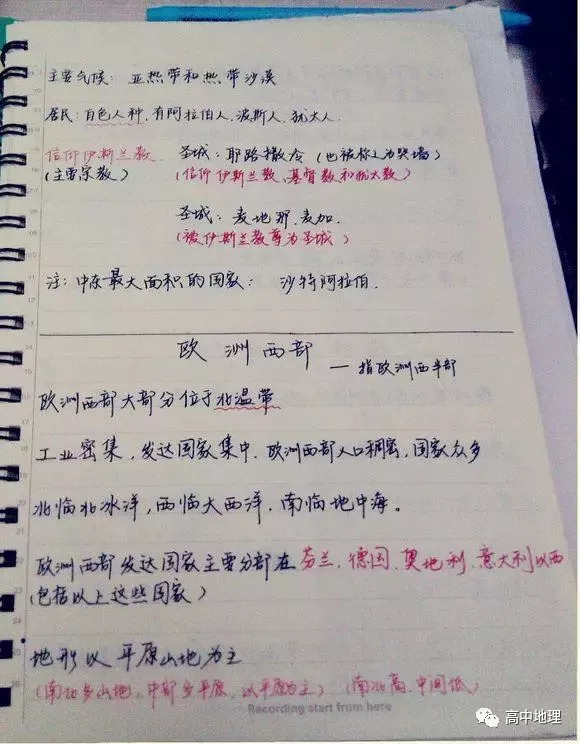 主要气候：亚热带和热带沙漠
居民：白色人种，有阿拉伯人，波斯人，犹太人
信仰伊斯兰教 圣城：耶路撒冷（也被称之为哭墙）
（主要宗教）（信仰伊斯兰教、基督教和犹太教）
圣城：麦地那，麦加.
（被伊斯兰教尊为圣城）
注：中东最大面积的国家：沙特阿拉伯.
欧洲西部 — 指欧洲西半部
欧洲西部大部分位于北温带
工业密集，发达国家集中，欧洲西部人口稠密，国家众多
北临北冰洋，西临大西洋，南临地中海。
欧洲西部发达国家主要分部在芬兰，德国，奥地利，意大利以西
（包括以上这些国家）
地形以平原山地为主
（南北多山地，中部多平原，以平原为主）（南北高，中间低）
Recording start from here
高中地理